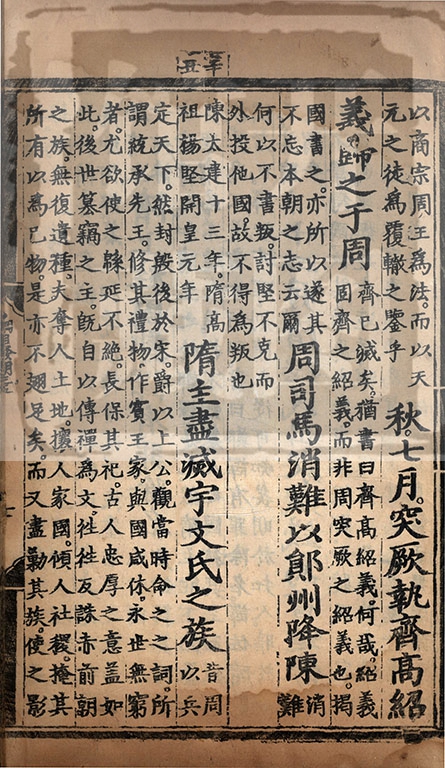 辛丑
以商宗周王為法。而以天
元之徒為覆轍之鑒乎
秋七月。突厥執齊高紹
義歸之于周
齊已滅矣。猶書曰齊高紹義。何哉。紹義
固齊之紹義。而非周突厥之紹義也。揭
國書之。亦所以遂其
不忘本朝之志云爾
周司馬消難以鄖州降陳
消
難
何以不書叛。討堅不克而
外投他國。故不得為叛也
陳太建十三年。隋高
祖楊堅開皇元年
隋主盡滅宇文氏之族
昔周
以兵
定天下。然封毀後於宋。爵以上公。觀當時命之之詞。所
謂統承先王。修其禮物。作賓王家。與國咸休。永世無窮
者。尤欲使之緜延不絕。長保其祀。古人忠厚之意蓋如
此。後世篡竊之主。旣自以傳禪為文。徃徃反誅赤前朝
之族。無復遺種。夫奪人土地。攘人家國。傾人社稷。掩其
所有以為己物。是亦不翅足矣。而又盡勦其族。使之影